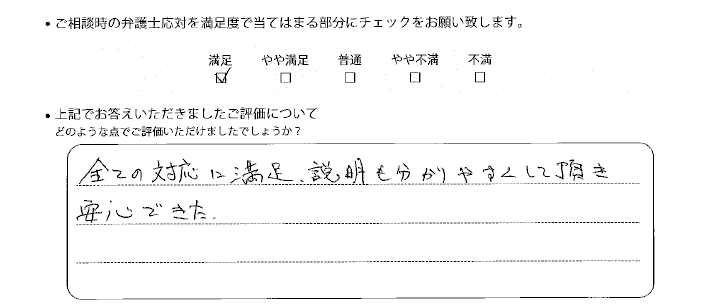 • ご相談時の弁護士応対を満足度で当てはまる部分にチェックをお願い致します。
満足 やや満足 普通 やや不満 不満
☑ □ □ □ □
• 上記でお答えいただきましたご評価について
どのような点でご評価いただけましたでしょうか？
全ての対応に満足、説明も分かりやすくして頂き
安心できた。